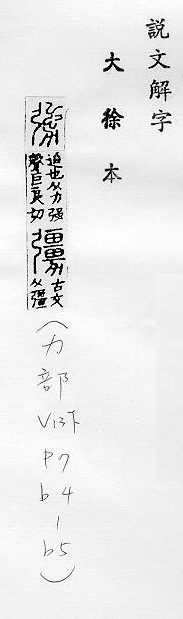 說文解字
大徐本
勥迫也从力強聲巨良切古文从彊(力部V13下P7b4-b5)